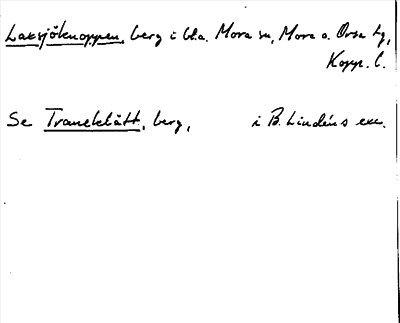 Laxsjöknoppen, berg i bl.a. Mora sn, Mora o. Orsa tg,
Kopp. l.
Se Tranuklätt, berg, i B. Lindéns exc.